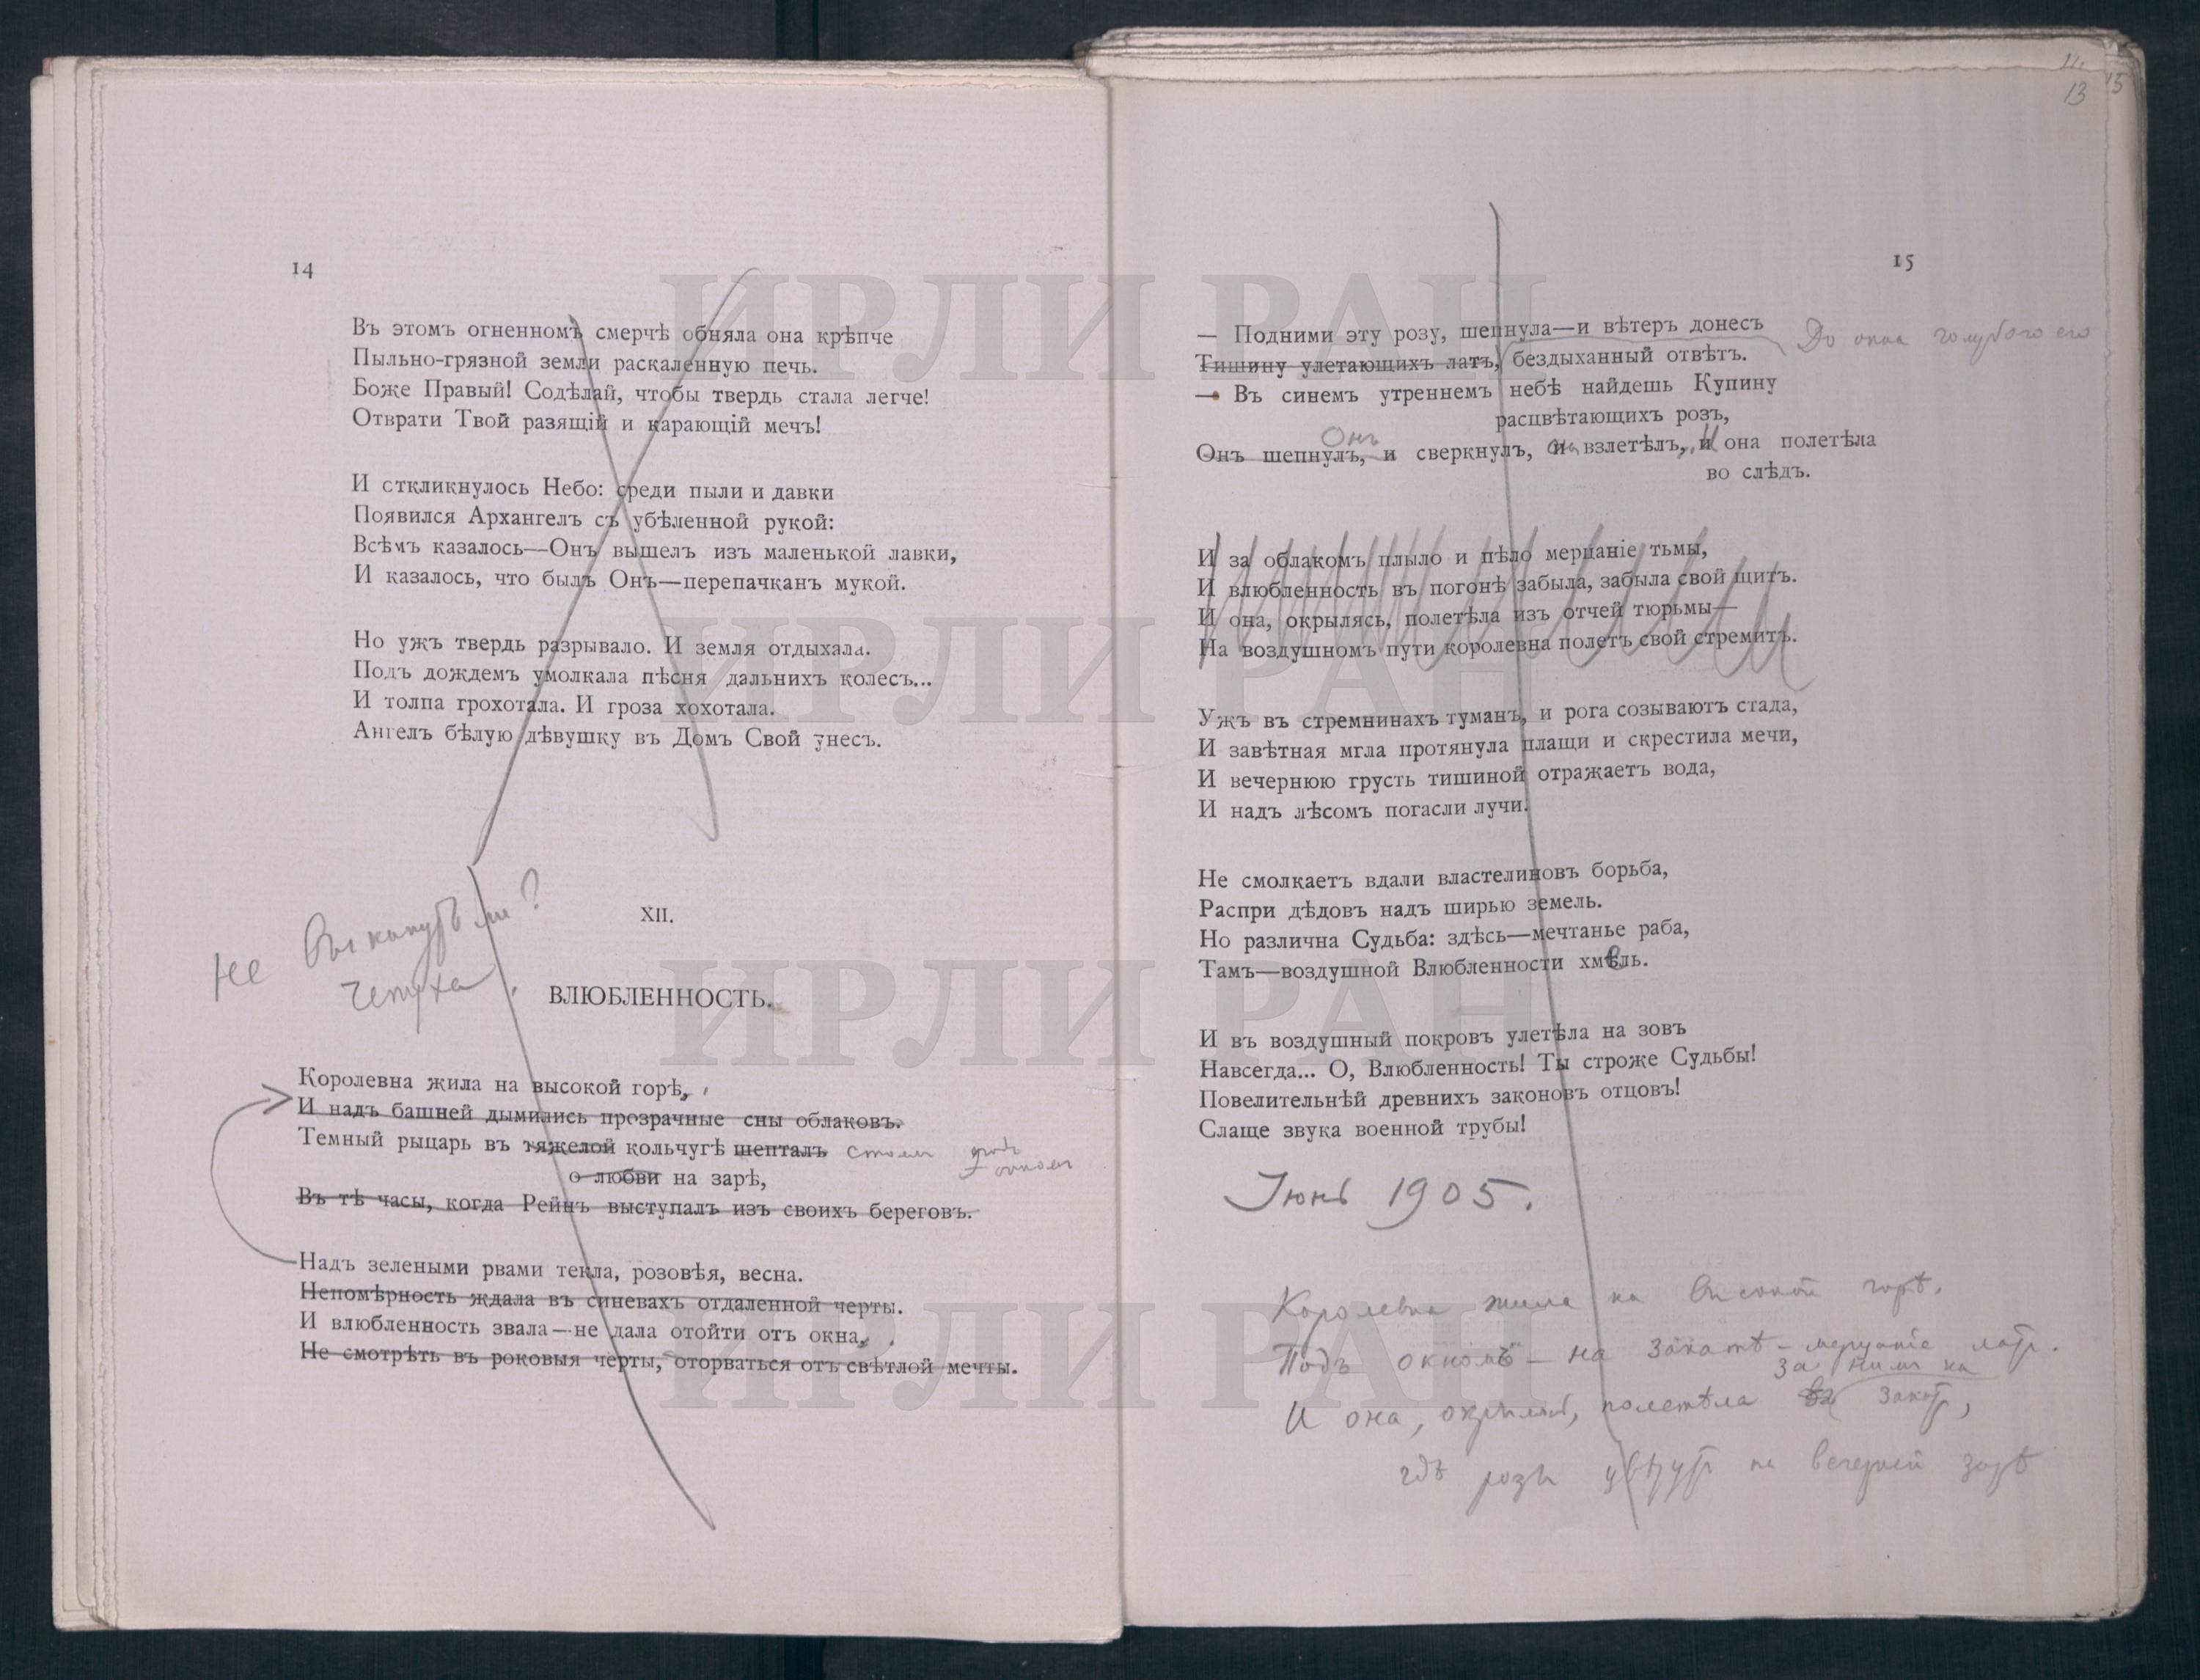 14
Въ этомъ огненномъ смерчѣ обняла она крѣпче
Пыльно-грязной земли раскаленную печь.
Боже Правый! Содѣлай, чтобы твердь стала легче!
Отврати Твой разящій и карающій мечъ!
И сткликнулось Небо: среди пыли и давки
Появился Архангелъ съ убѣленной рукой:
Всѣмъ казалось—Онъ вышелъ изъ маленькой лавки,
И казалось, что былъ Онъ—перепачканъ мукой.
Но ужъ твердь разрывало. И земля отдыхала.
Подъ дождемъ умолкала пѣсня дальнихъ колесъ...
И толпа грохотала. И гроза хохотала.
Ангелъ бѣлую дѣвушку въ Домъ Свой унесъ.
Не выкинуть ли?
Чепуха.
XII.
ВЛЮБЛЕННОСТЬ.
Королевна жила на высокой горѣ,
И надъ башней дымились прозрачные сны облаковъ.
Темный рыцарь въ тяжелой кольчугѣ шепталъ
о любви на зарѣ,
Въ тѣ часы, когда Рейнъ выступалъ изъ своихъ береговъ.
Надъ зелеными рвами текла, розовѣя, весна.
Непомѣрность ждала въ синевахъ отдаленной черты.
И влюбленность звала—не дала отойти отъ окна,
Не смотрѣть въ роковыя черты, оторваться отъ свѣтлой мечты.
13
15
15
— Подними эту розу, шепнула—и вѣтеръ донесъ
До окна голубого его
Тишину улетающихъ латъ, бездыханный отвѣтъ.
— Въ синемъ утреннемъ небѣ найдешь Купину
расцвѣтающихъ розъ,
Онъ
Онъ шепнулъ, и сверкнулъ, и взлетѣлъ, и она полетѣла
во слѣдъ.
И за облакомъ плыло и пѣло мерцаніе тьмы,
И влюбленность въ погонѣ забыла, забыла свой щитъ.
И она, окрылясь, полетѣла изъ отчей тюрьмы—
На воздушномъ пути королевна полетъ свой стремитъ.
Ужъ въ стремнинахъ туманъ, и рога созываютъ стада,
И завѣтная мгла протянула плащи и скрестила мечи,
И вечернюю грусть тишиной отражаетъ вода,
И надъ лѣсомъ погасли лучи.
Не смолкаетъ вдали властелиновъ борьба,
Распри дѣдовъ надъ ширью земель.
Но различна Судьба: здѣсь—мечтанье раба,
Тамъ—воздушной Влюбленности хмель.
И въ воздушный покровъ улетѣла на зовъ
Навсегда... О, Влюбленность! Ты строже Судьбы!
Повелительнѣй древнихъ законовъ отцовъ!
Слаще звука военной трубы!
Іюнь 1905.
Королевна жила на высокой горѣ,
Подъ окномъ — на закатѣ — мерцаніе латъ.
за нимъ на
И она, окрылясь, полетѣла закатъ,
гдѣ розы цвѣтутъ на вечерней зарѣ
ИРЛИ РАН
ИРЛИ РАН
ИРЛИ РАН
ИРЛИ РАН